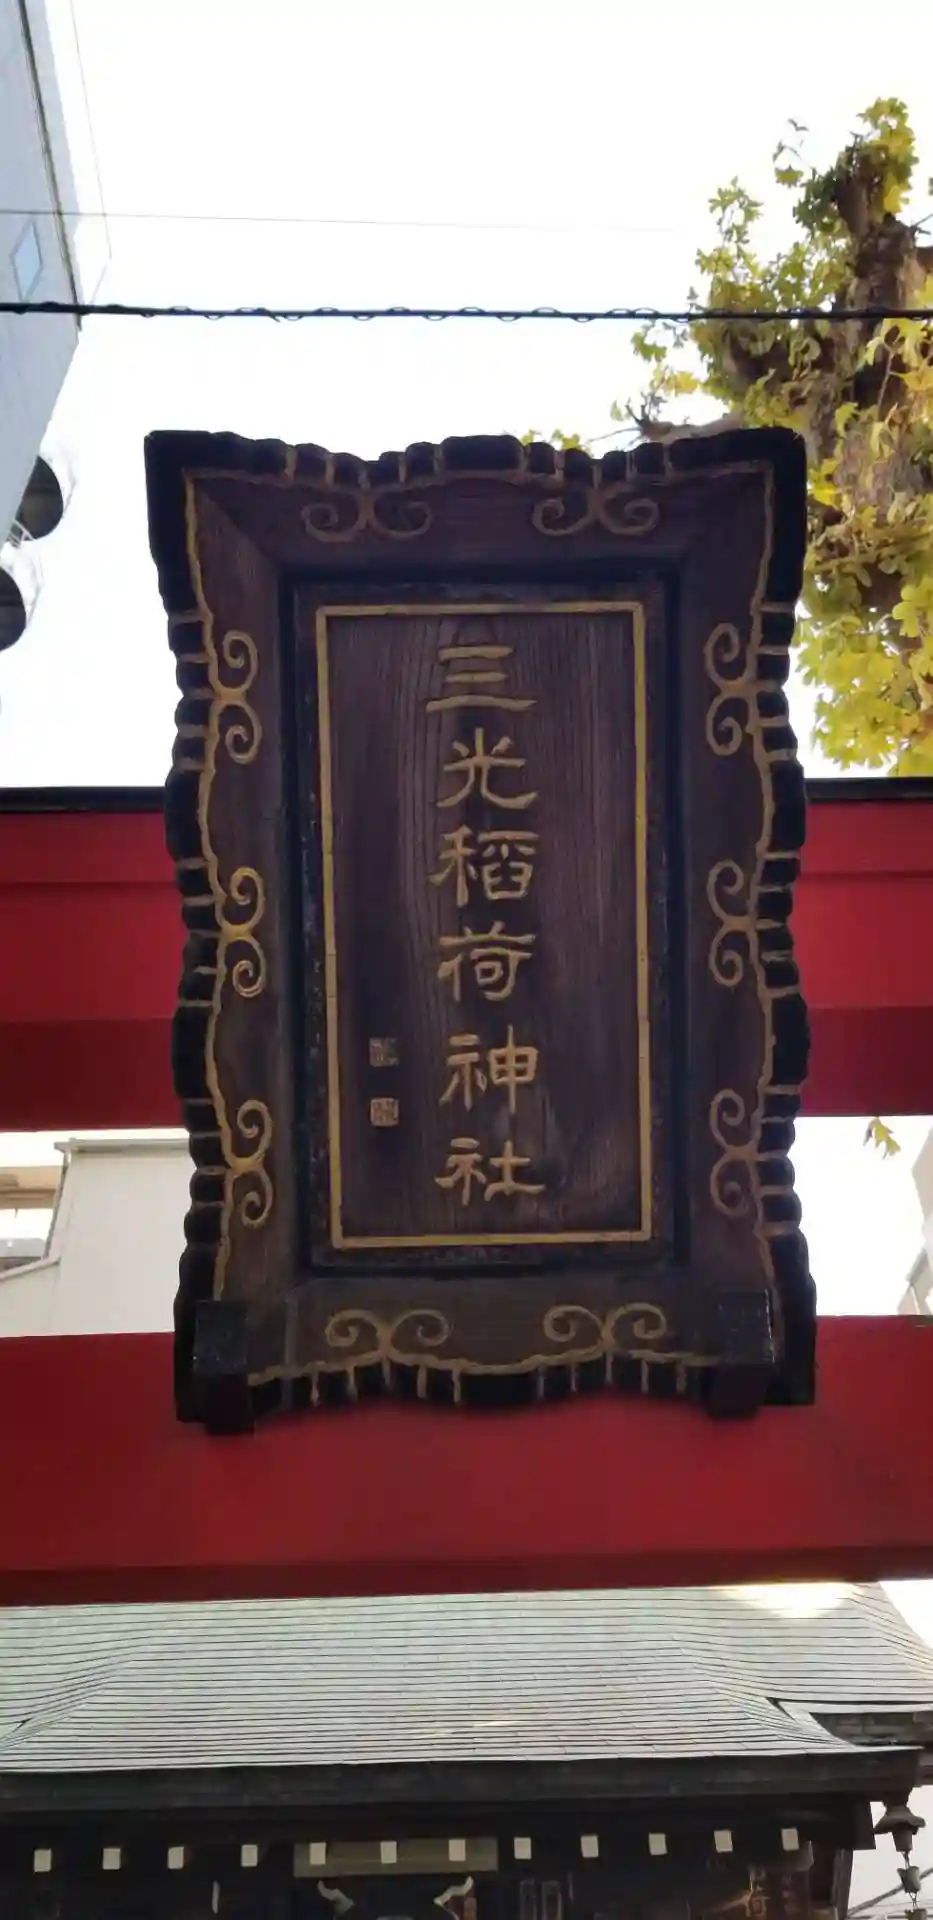 三光稲荷神社